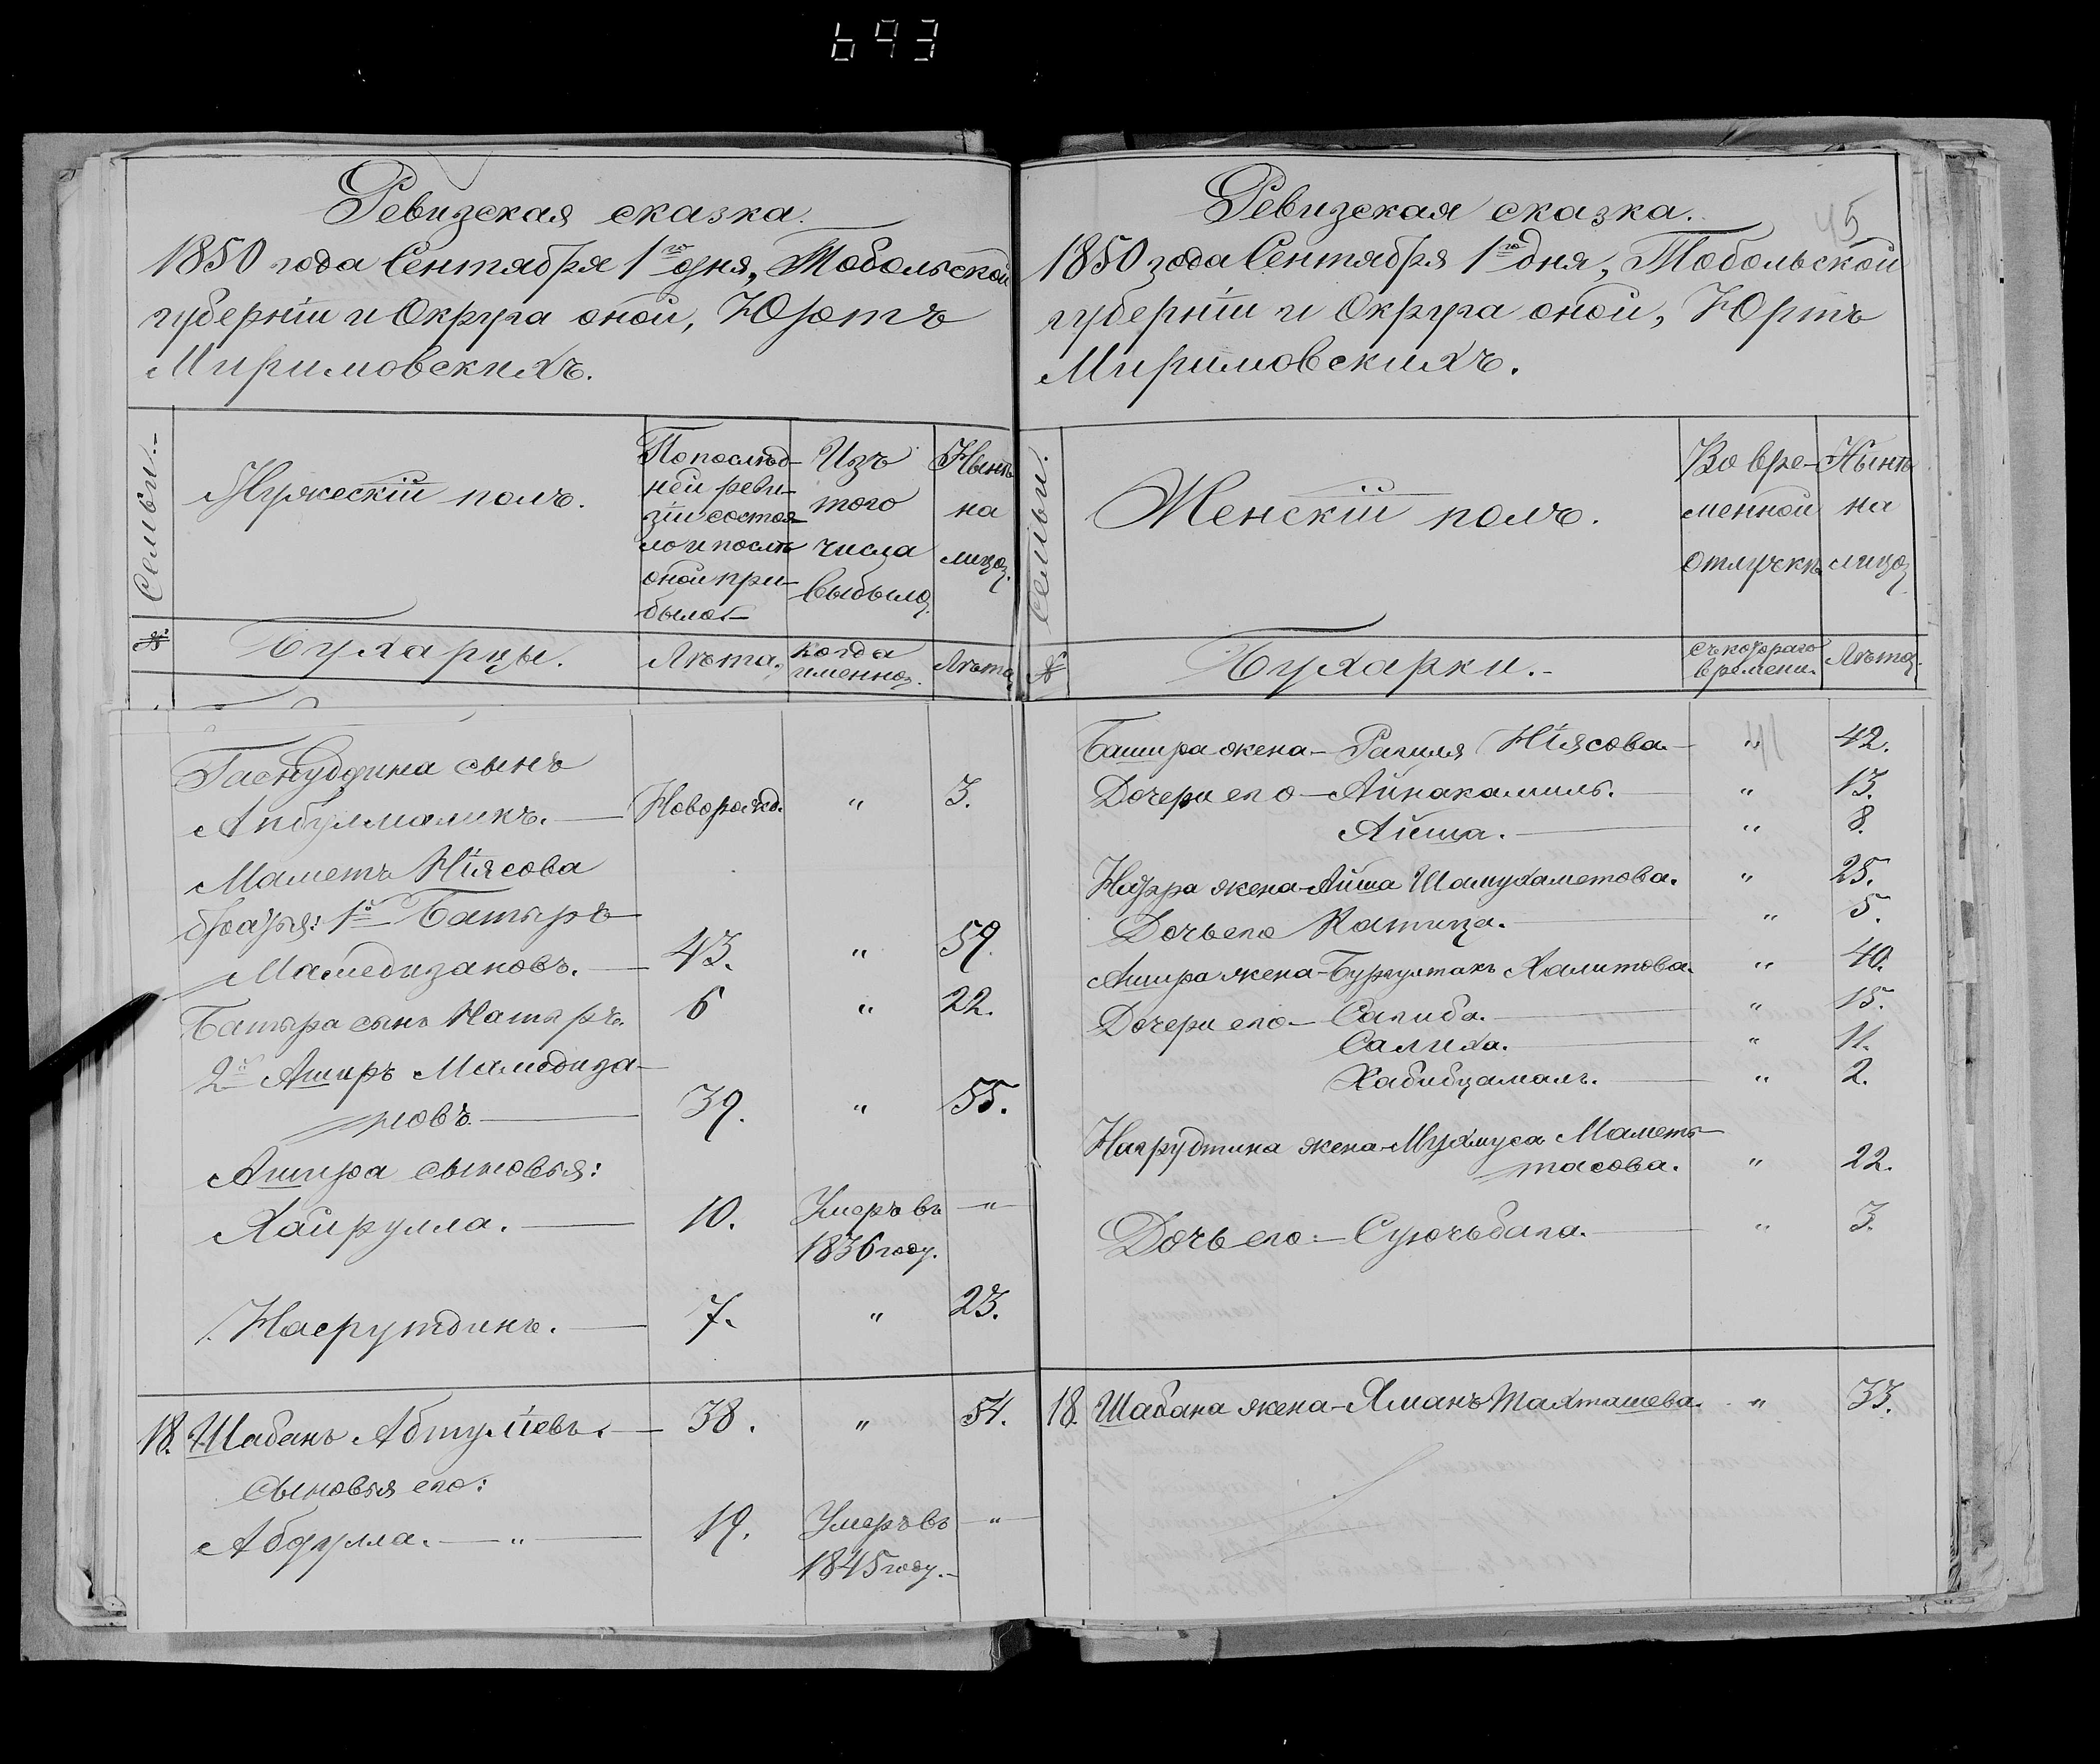 693
Ревизская сказка.
1850 года Сентября 1го дня, Тобольской
губерніи и Округа оной, Юртъ
Миримовскихъ.
Семьи.
Мужескій полъ.
По послѣд-
ней реви-
зіи состоя-
ло и послѣ
оной при-
было.
Изъ
того
числа
выбыло.
Нынѣ
на
лицо.
№
Бухарцы.
Лѣта.
когда
именно.
Лѣта
сынъ
Новорожд. " 3.
Маметъ Ніясова
братья: 1й Батыръ
43. " 59.
Батыра сынъ 6 " 22.
2й Аширъ
новъ. 39. " 55.
Ашира сыновья:
Хайрулла. 10. Умеръ въ "
1836 году.
Насрутдинъ. 7. " 23.
18. Шабанъ 38. " 54.
Сыновья его:
Абдулла. " 19. Умеръ въ "
1845 году.
Ревизская сказка.
45
1850 года Сентября 1го дня, Тобольской
губерніи и Округа оной, Юртъ
Миримовскихъ.
Семьи.
Женскій полъ.
Во вре-
менной
отлучкѣ
Нынѣ
на
лицо
№
Бухарки.
съ котораго
времени.
Лѣта.
Башира жена - Ніясова " 42.
Дочери его - Айнакамиль. " 13.
Айша. " 8.
жена - Айша Шамухаметова. " 25.
Дочь его " 5.
Ашира жена - Халитова. " 40.
Дочери его - " 15.
Салиха. " 11.
Хабибцамалъ. " 2.
жена - Маметъ-
тасова. " 22.
Дочь его: - " 3.
18. Шабана жена - " 33.